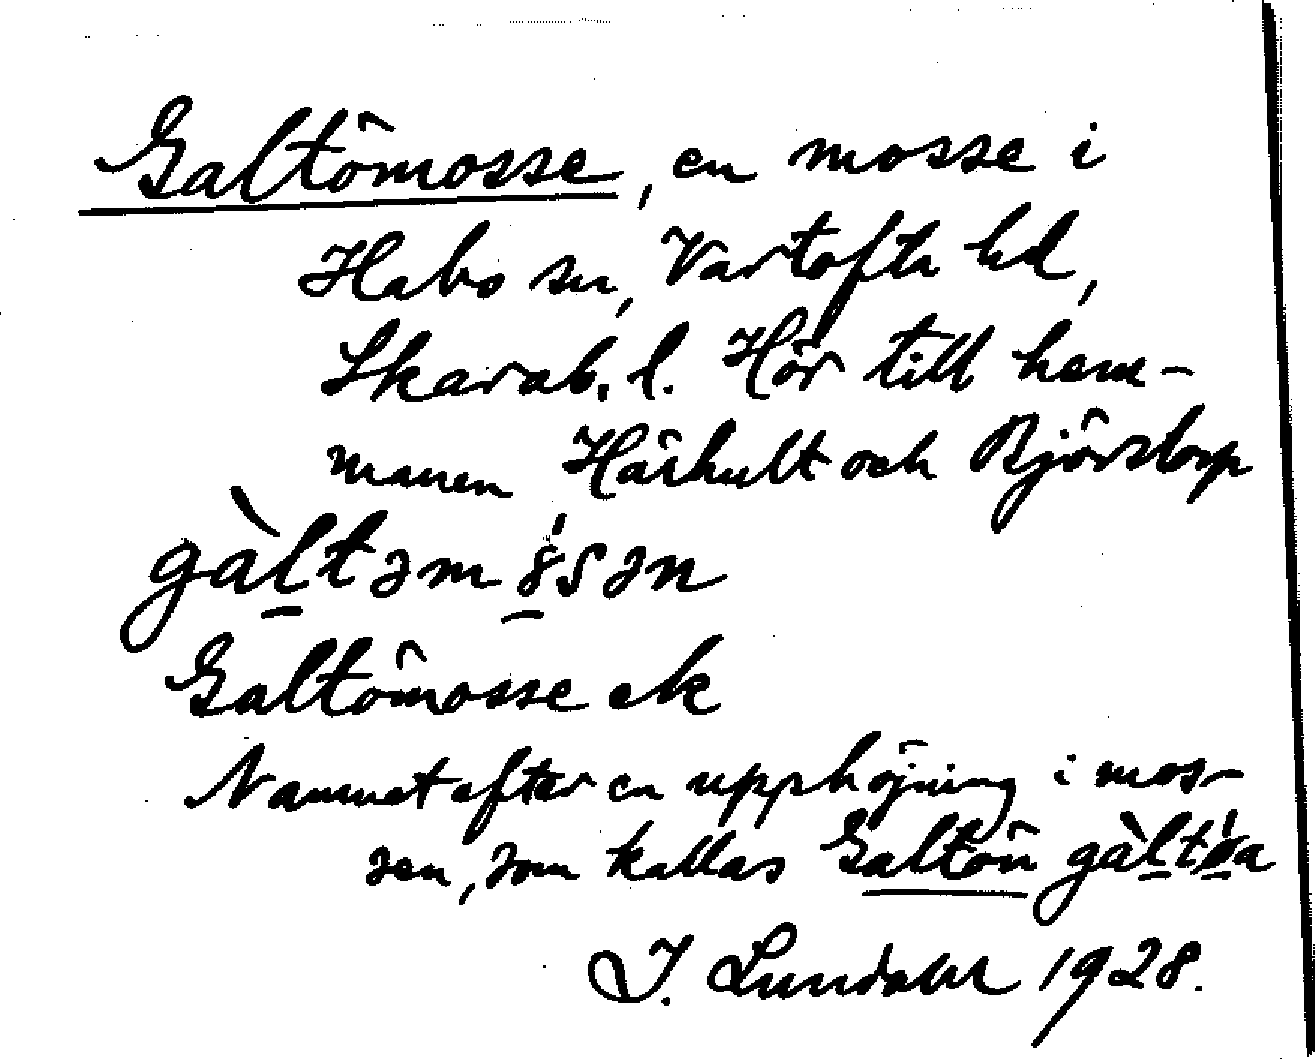 Galtömosse, en mosse i
Habo sn, Vartofta hd,
Skarab. l. Hör till hem-
manen Härhult och Björstorp
gàltəmȣ́sən
Galtömosse ek
Namnet efter en upphöjning i mos-
sen, som kallas Galtön gàltø̀a
I. Lundahl 1928.